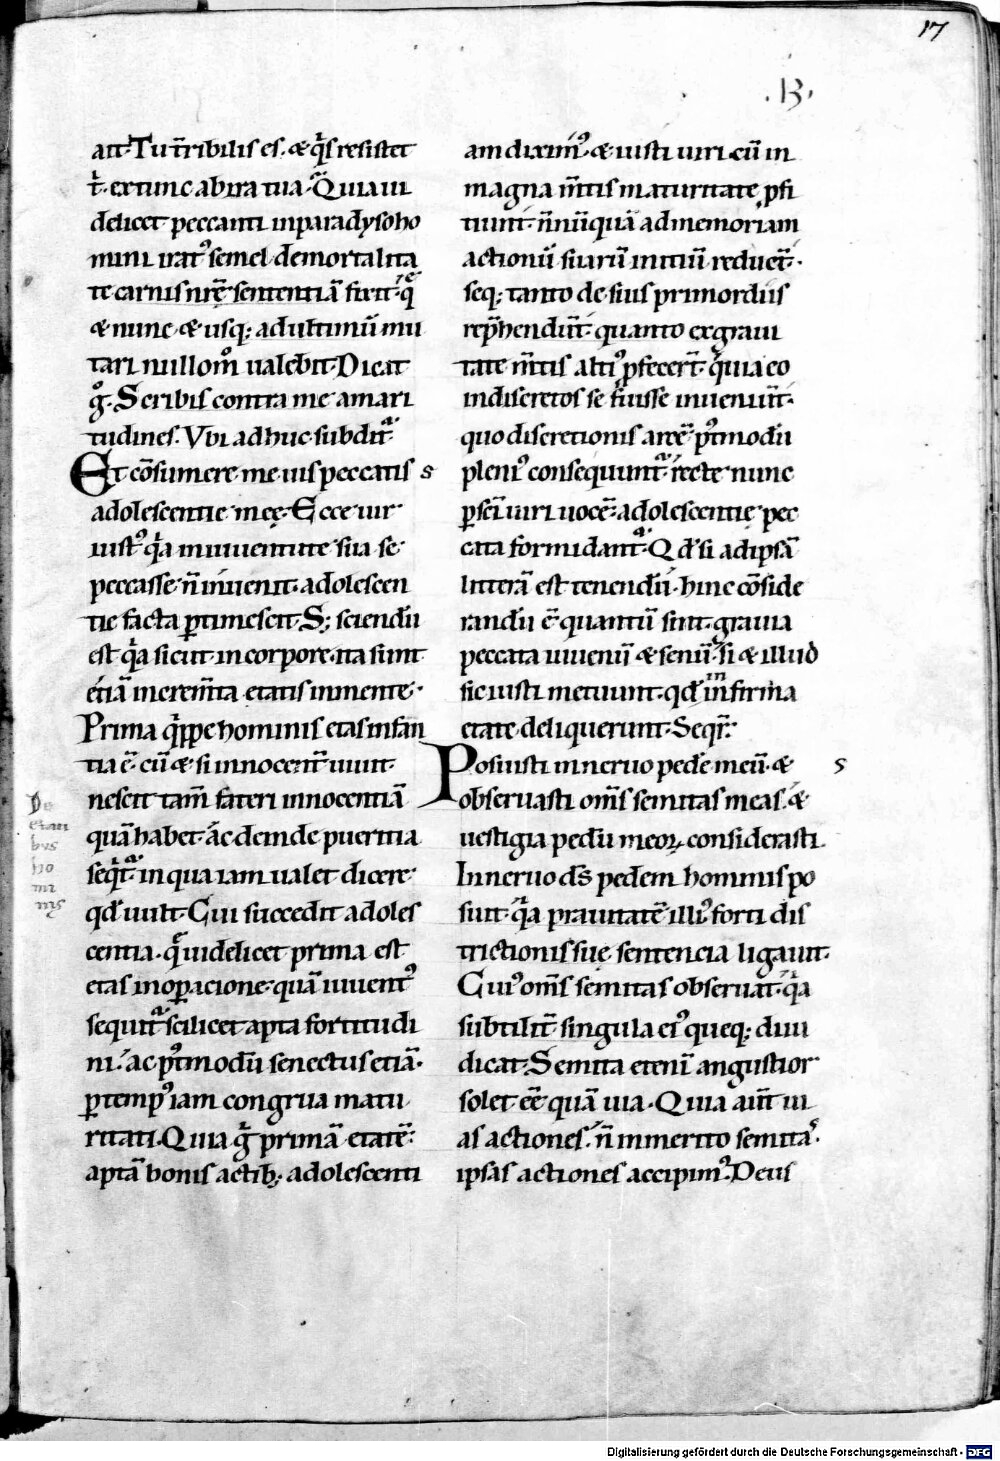 17
.B.
ait. Tu t̄ribilis es. & q̇s resistet
t̄. ex tunc ab ira tua. Quia ui
delicet peccanti in paradyso ho
mini irat᷒ semel de mortalita
te carnis nr̄ę sententiā fixit. q̄
& nunc & usq; ad ultimū mu
tari nullom̊ ualebit. Dicat
g̊. Scribis contra me amari
tudines. Vbi adhuc subdit᷑.
Et cōsumere me uis peccatis s
adolescentie meę. Ecce uir
iust᷒ q̇a in iuuentute sua se
peccasse n̄ inuenit. adolescen
tie facta ꝑtimescit. S; sciendū
est q̇a sicut in corpore. ita sunt
etiā increm̄ta etatis in mente.
Prima q̇ppe hominis etas infan
tia ē. cū & si innocent̄ uiuit.
nescit tam̄ fateri innocentiā
quā habet. Āc deinde pueritia
seq̇t᷑. in qua iam ualet dicere
qđ uult. Cui succedit adoles
centia. q̄ uidelicet prima est
etas in oꝑacione. quā iuuent᷒
sequit᷑. scilicet apta fortitudi
ni. ac p᷒tmodū senectus etiā.
ꝑ temp᷒ iam congrua matu
ritati. Quia g̊ primā etatē
aptā bonis actib; adolescenti
De
etati
bus
ho
mi
nis
am dixim᷒. & iusti uiri cū in
magna m̄tis maturitate ꝓfi
tiunt. n̄nūquā ad memoriam
actionū suarū initiū reduct̄.
seq; tanto de suis primordiis
rep̄hendūt. quanto ex graui
tate m̄tis alti᷒ ꝓfecer̄t. q̇a eo
indiscretos se fuisse inueniūt.
quo discretionis arcē p᷒tmodū
pleni᷒ consequunt᷑. recte nunc
ꝑ sc̄i uiri uocē. adolescentie pec
cata formidant᷑. Qđ si ad ipsā
litterā est tenendū. hinc cōside
randū ē. quantū sint grauia
peccata iuuenū & senū. si & illud
sic iusti metuunt. qđ in infirma
etate deliquerunt. Seqr̄.
Posuisti in neruo pedē meū. & s
obseruasti om̄s semitas meas. &
uestigia pedū meoꝝ considerasti.
In neruo d̄s pedem hominis po
suit. q̇a prauitatē illi᷒ forti dis
trictionis sue sentencia ligauit.
Cui᷒ om̄s semitas obseruat. q̇a
subtilit̄ singula ei᷒ queq; diiu
dicat. Semita etenī angustior
solet ēē quā uia. Quia aut̄ ui
as actiones. n̄ inmerito semitas
ipsas actiones accipim᷒. Deus
Digitalisierung gefördert durch die Deutsche Forschungsgemeinschaft - DFG